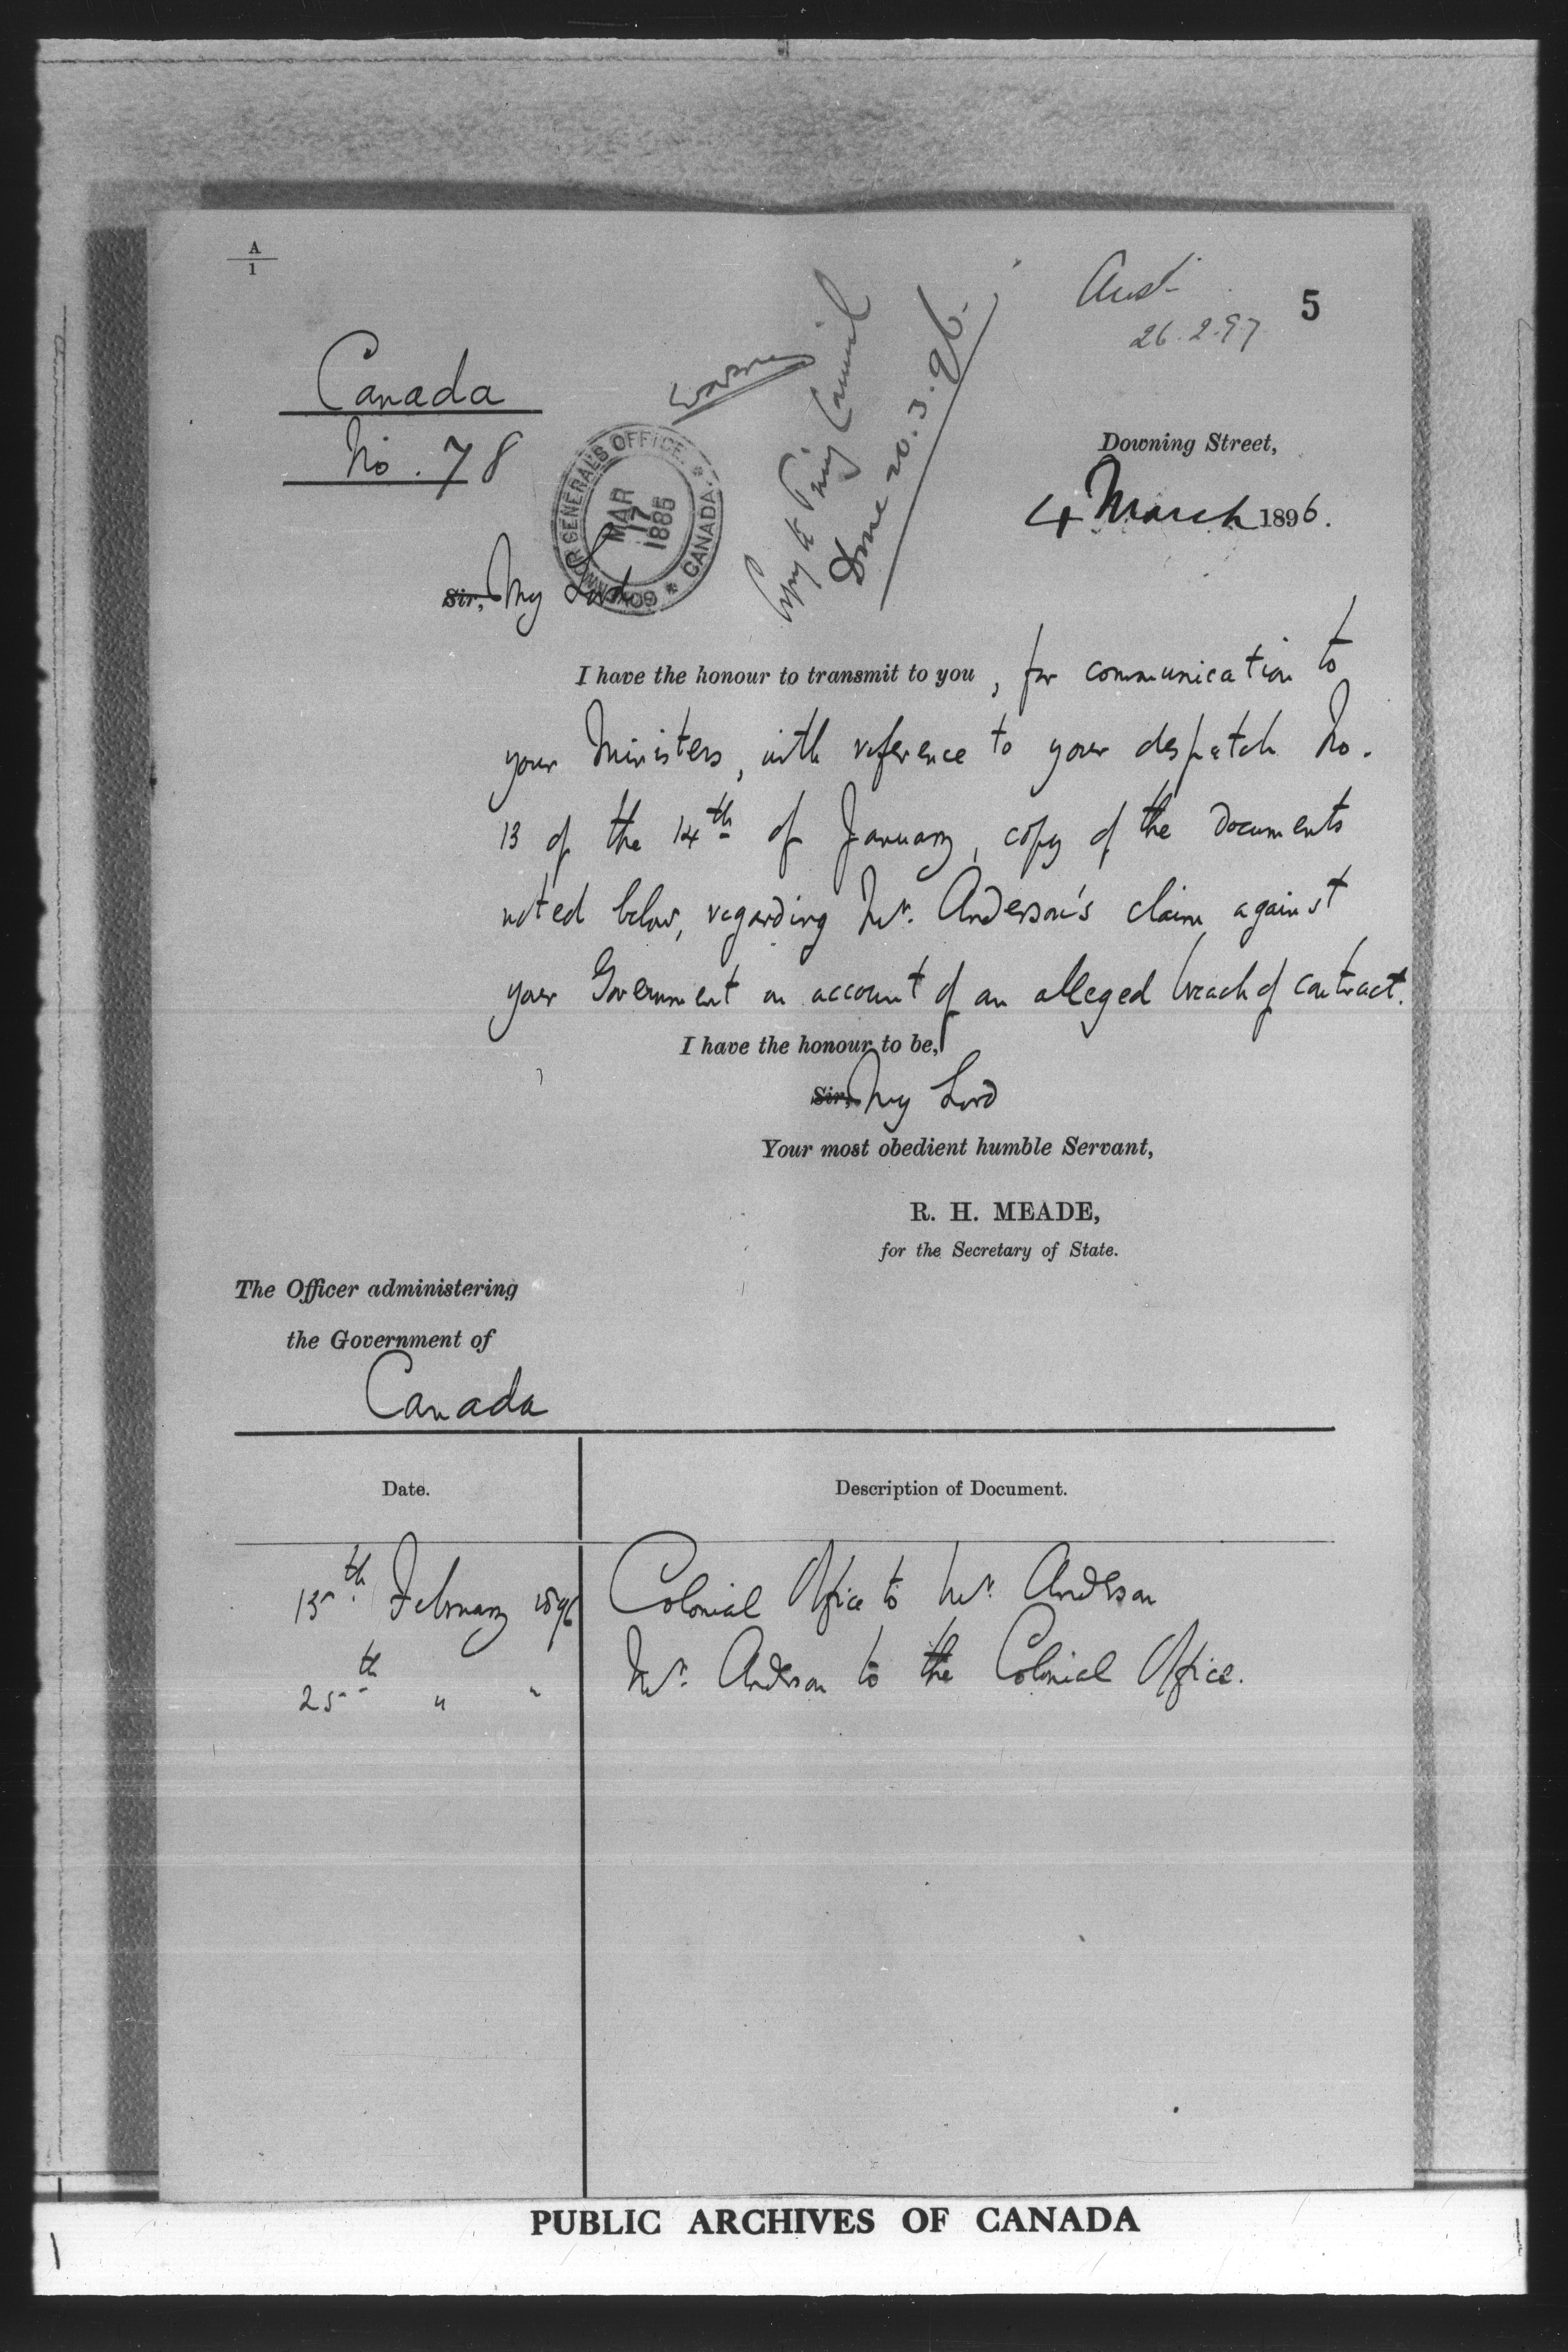 A
1
Aust
26.2.97
5
Canada
No. 78
GOVERNOR GENERAL'S OFFICE * CANADA *
MAR
17
1886
Copy to Privy Council
Done 20.3.96.
Downing Street,
4 March 1896.
Sir, My Lord
I have the honour to transmit to you, for communication to
your Ministers, with reference to your despatch No.
13 of the 14th of January, copy of the Documents
noted below, regarding Mr. Anderson's claim against
your Government on account of an alleged breach of contract.
I have the honour to be,
Sir, My Lord
Your most obedient humble Servant,
R. H. MEADE,
for the Secretary of State.
The Officer administering
the Government of
Canada
Date. Description of Document.
15th February 1896 Colonial Office to Mr. Anderson
25th " " Mr. Anderson to the Colonial Office.
PUBLIC ARCHIVES OF CANADA